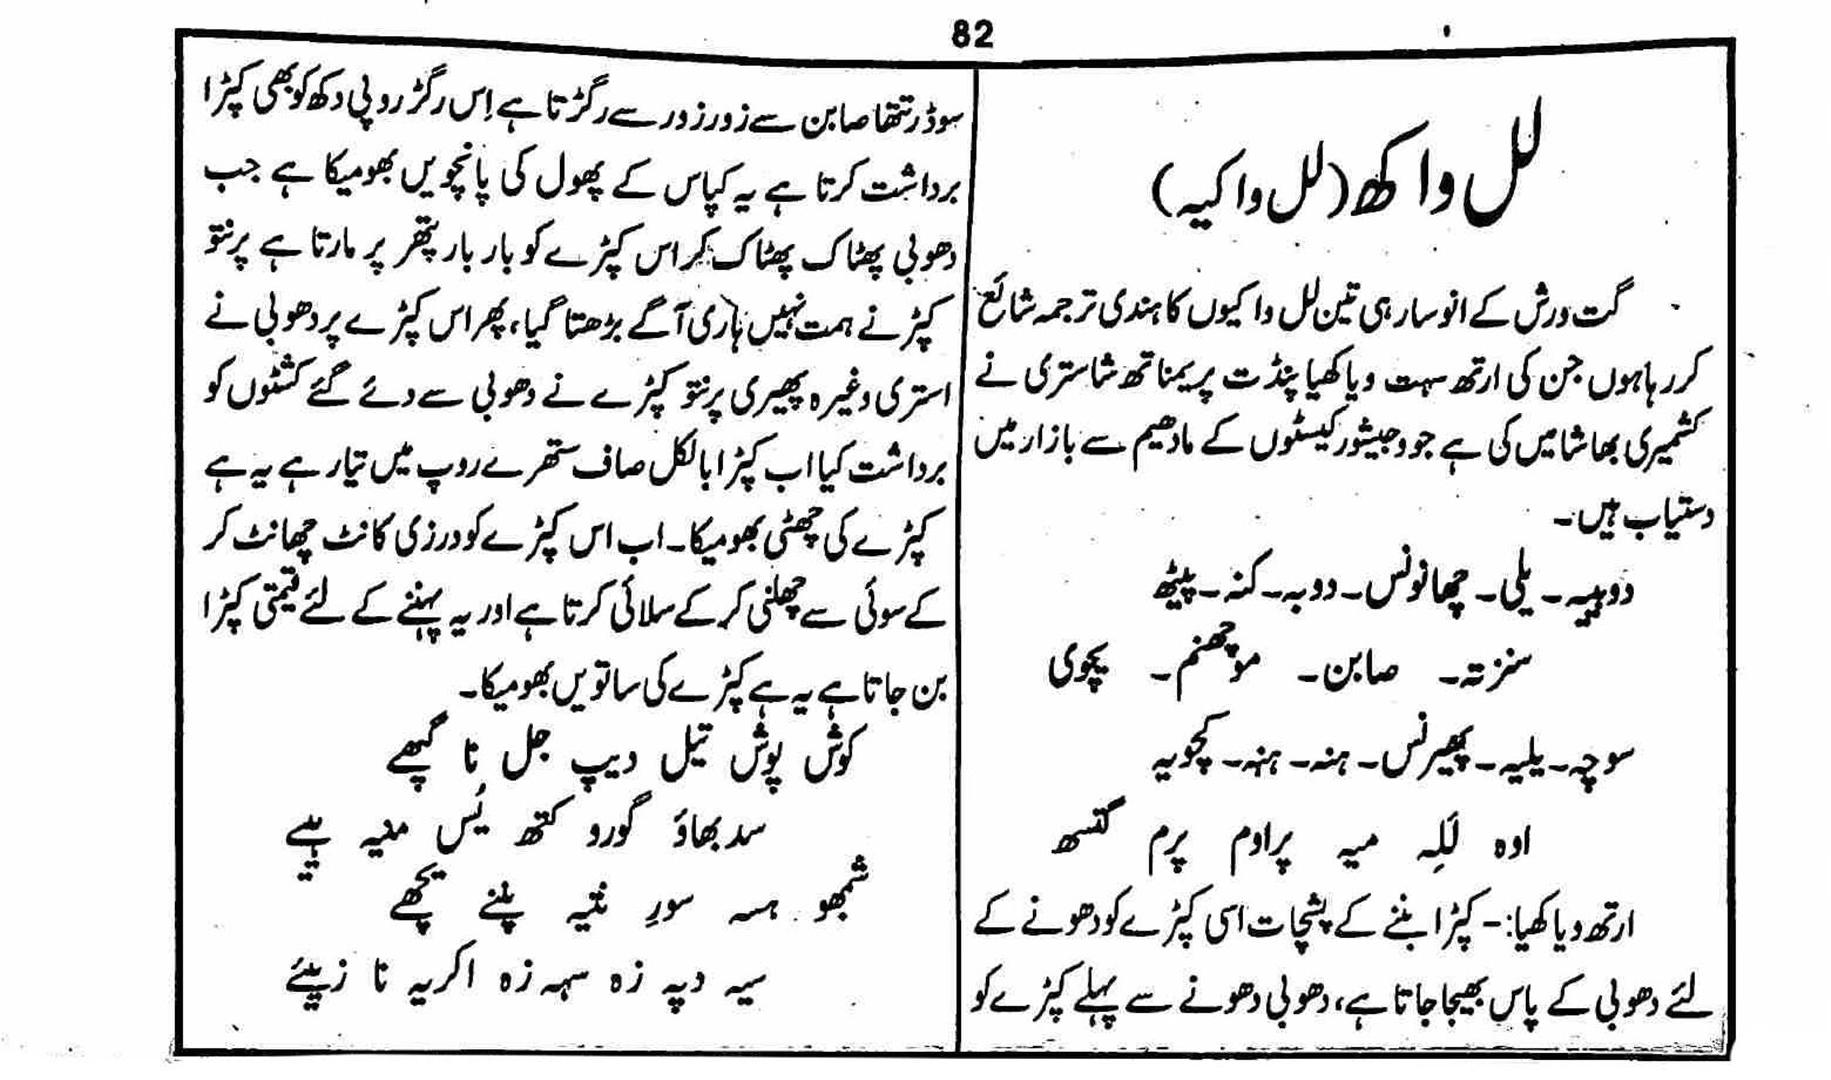 82
لل واکھ (لل واکیہ)
گت ورش کے انوسار ہی تین لل واکیوں کا ہندی ترجمہ شائع
کر رہا ہوں جن کی ارتھ سہت ویاکھیا پنڈت پریمناتھ شاستری نے
کشمیری بھاشا میں کی ہے جو وجیشور کیسٹوں کے مادھیم سے بازار میں
دستیاب ہیں۔
دوبیہ۔ یلی۔ چھانونس۔ دوبہ۔ کنہ۔ پیٹھ
سنز تہ۔ صابن۔ موچھنم۔ یچوی
سوچہ۔ یلیہ۔ پھیرنس۔ ہنہ۔ ہنہ۔ کچویہ
اوہ لَلِہ میہ پراوم پرم گتسھ
ارتھ ویاکھیا:- کپڑا بننے کے پشچات اسی کپڑے کو دھونے کے
لئے دھوبی کے پاس بھیجا جاتا ہے، دھوبی دھونے سے پہلے کپڑے کو
سوڈر تتھا صابن سے زور زور سے رگڑتا ہے اِس رگڑ روپی دکھ کو بھی کپڑا
برداشت کرتا ہے یہ کپاس کے پھول کی پانچویں بھومیکا ہے جب
دھوبی پھٹاک پھٹاک کر اس کپڑے کو بار بار پتھر پر مارتا ہے پرنتو
کپڑنے ہمت نہیں ہاری آگے بڑھتا گیا، پھر اس کپڑے پر دھوبی نے
استری وغیرہ پھیری پرنتو کپڑے نے دھوبی سے دئے گئے کشٹوں کو
برداشت کیا اب کپڑا بالکل صاف ستھرے روپ میں تیار ہے یہ ہے
کپڑے کی چھٹی بھومیکا۔ اب اس کپڑے کو درزی کانٹ چھانٹ کر
کے سوئی سے چھلنی کر کے سلائی کرتا ہے اور یہ پہننے کے لئے قیمتی کپڑا
بن جاتا ہے یہ ہے کپڑے کی ساتویں بھومیکا۔
کوش پوش تیل دیپ جل نا گچھے
سدبھاوٗ گورو کتھ یُس منیہ ہیے
شمبھو ہسہ سورِ نتیہ پننے یچھے
سیہ دپہ زہ سہہ زہ اکریہ نا زیئے